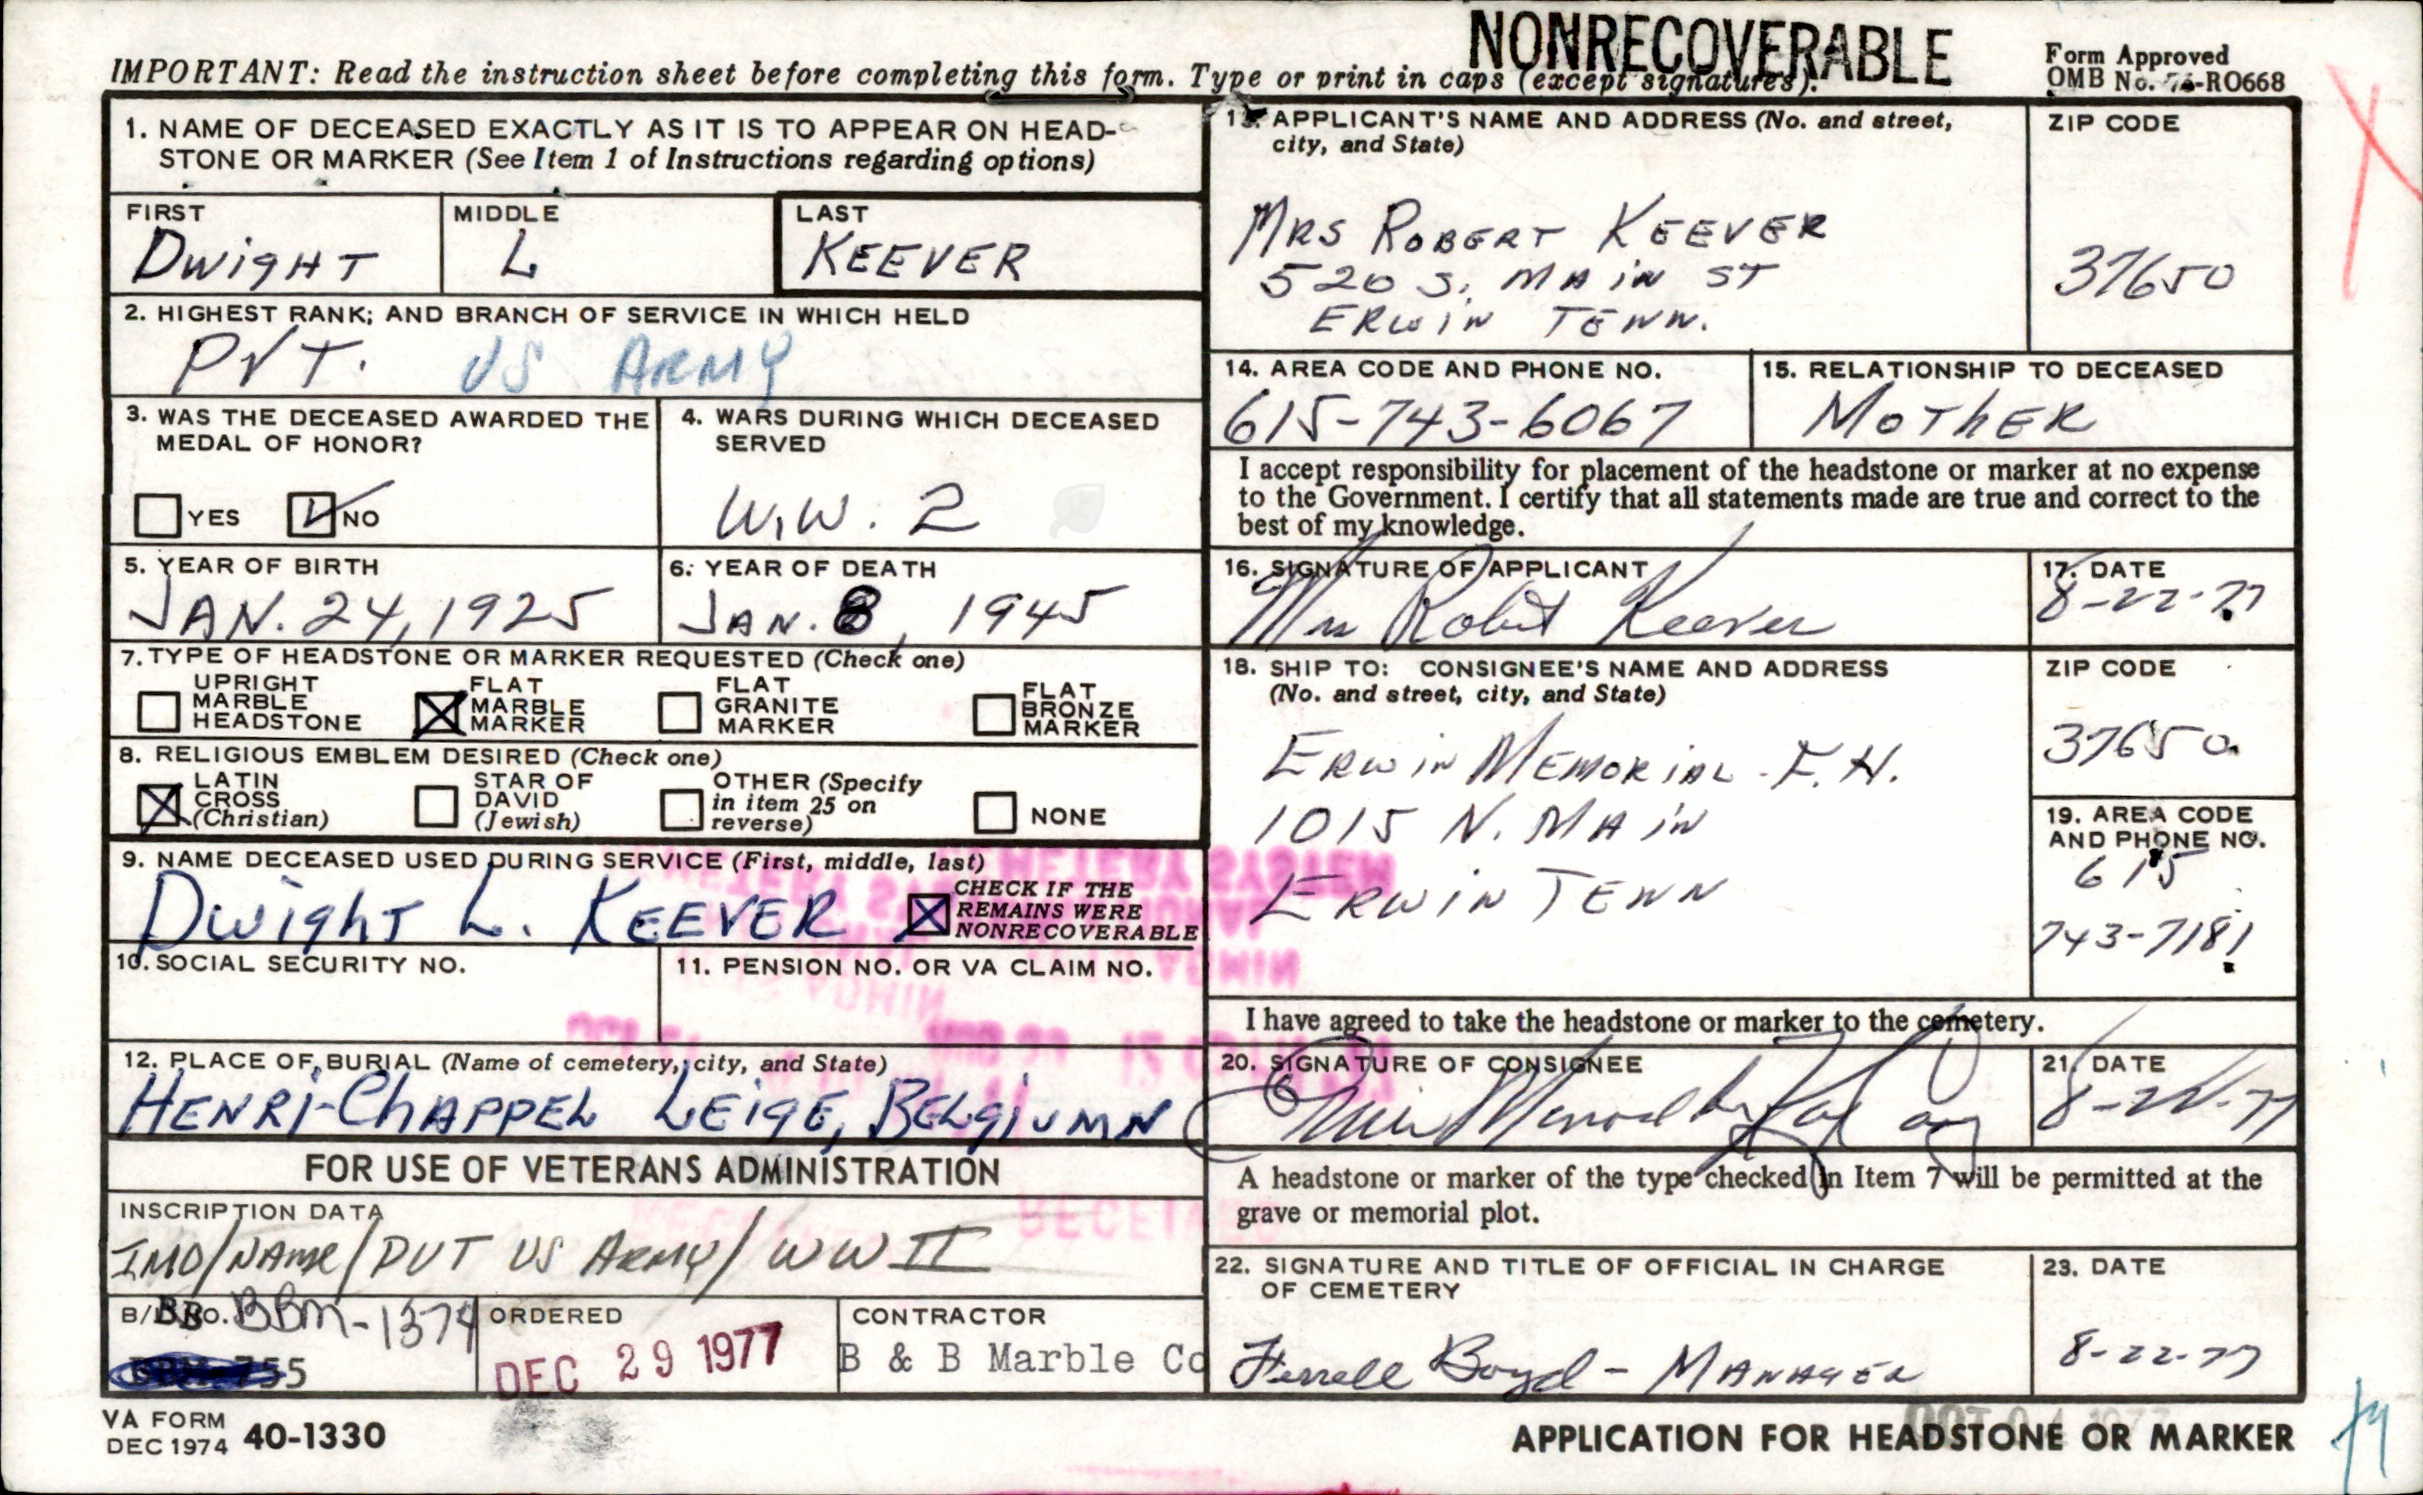 NONRECOVERABLE
IMPORTANT: Read the instruction sheet before completing this form. Type or print in caps (except signatures).
Form Approved
OMB No. -RO668
1. NAME OF DECEASED EXACTLY AS IT IS TO APPEAR ON HEAD-
STONE OR MARKER (See Item 1 of Instructions regarding options)
FIRST MIDDLE LAST
DWIGHT L KEEVER
2. HIGHEST RANK; AND BRANCH OF SERVICE IN WHICH HELD
PVT. US ARMY
3. WAS THE DECEASED AWARDED THE
MEDAL OF HONOR?
YES NO
4. WARS DURING WHICH DECEASED
SERVED
W.W. 2
5. YEAR OF BIRTH
JAN. 24, 1925
6. YEAR OF DEATH
JAN. 8, 1945
7. TYPE OF HEADSTONE OR MARKER REQUESTED (Check one)
UPRIGHT
MARBLE
HEADSTONE
FLAT
MARBLE
MARKER
FLAT
GRANITE
MARKER
FLAT
BRONZE
MARKER
8. RELIGIOUS EMBLEM DESIRED (Check one)
LATIN
CROSS
(Christian)
STAR OF
DAVID
(Jewish)
OTHER (Specify
in item 25 on
reverse)
NONE
9. NAME DECEASED USED DURING SERVICE (First, middle, last)
Dwight L. KEEVER
CHECK IF THE
REMAINS WERE
NONRECOVERABLE
10. SOCIAL SECURITY NO.
11. PENSION NO. OR VA CLAIM NO.
12. PLACE OF BURIAL (Name of cemetery, city, and State)
HENRI-CHAPPEL LEIGE, BELGIUMN
FOR USE OF VETERANS ADMINISTRATION
INSCRIPTION DATA
IMO/NAME/PVT US ARMY/WW II
B/L NO. BBM-1374
55
ORDERED
DEC 29 1977
CONTRACTOR
B & B Marble Co
VA FORM
DEC 1974 40-1330
13. APPLICANT'S NAME AND ADDRESS (No. and street,
city, and State)
MRS ROBERT KEEVER
520 S. MAIN ST
ERWIN TENN.
ZIP CODE
37650
14. AREA CODE AND PHONE NO.
615-743-6067
15. RELATIONSHIP TO DECEASED
MOTHER
I accept responsibility for placement of the headstone or marker at no expense
to the Government. I certify that all statements made are true and correct to the
best of my knowledge.
16. SIGNATURE OF APPLICANT
Mrs Robert Keever
17. DATE
8-22-77
18. SHIP TO: CONSIGNEE'S NAME AND ADDRESS
(No. and street, city, and State)
ERWIN MEMORIAL F.H.
1015 N. MAIN
ERWIN TENN
ZIP CODE
37650
19. AREA CODE
AND PHONE NO.
615
743-7181
I have agreed to take the headstone or marker to the cemetery.
20. SIGNATURE OF CONSIGNEE
21. DATE
8-22-77
A headstone or marker of the type checked in Item 7 will be permitted at the
grave or memorial plot.
22. SIGNATURE AND TITLE OF OFFICIAL IN CHARGE
OF CEMETERY
Ferrell Boyd - MANAGER
23. DATE
8-22-77
APPLICATION FOR HEADSTONE OR MARKER